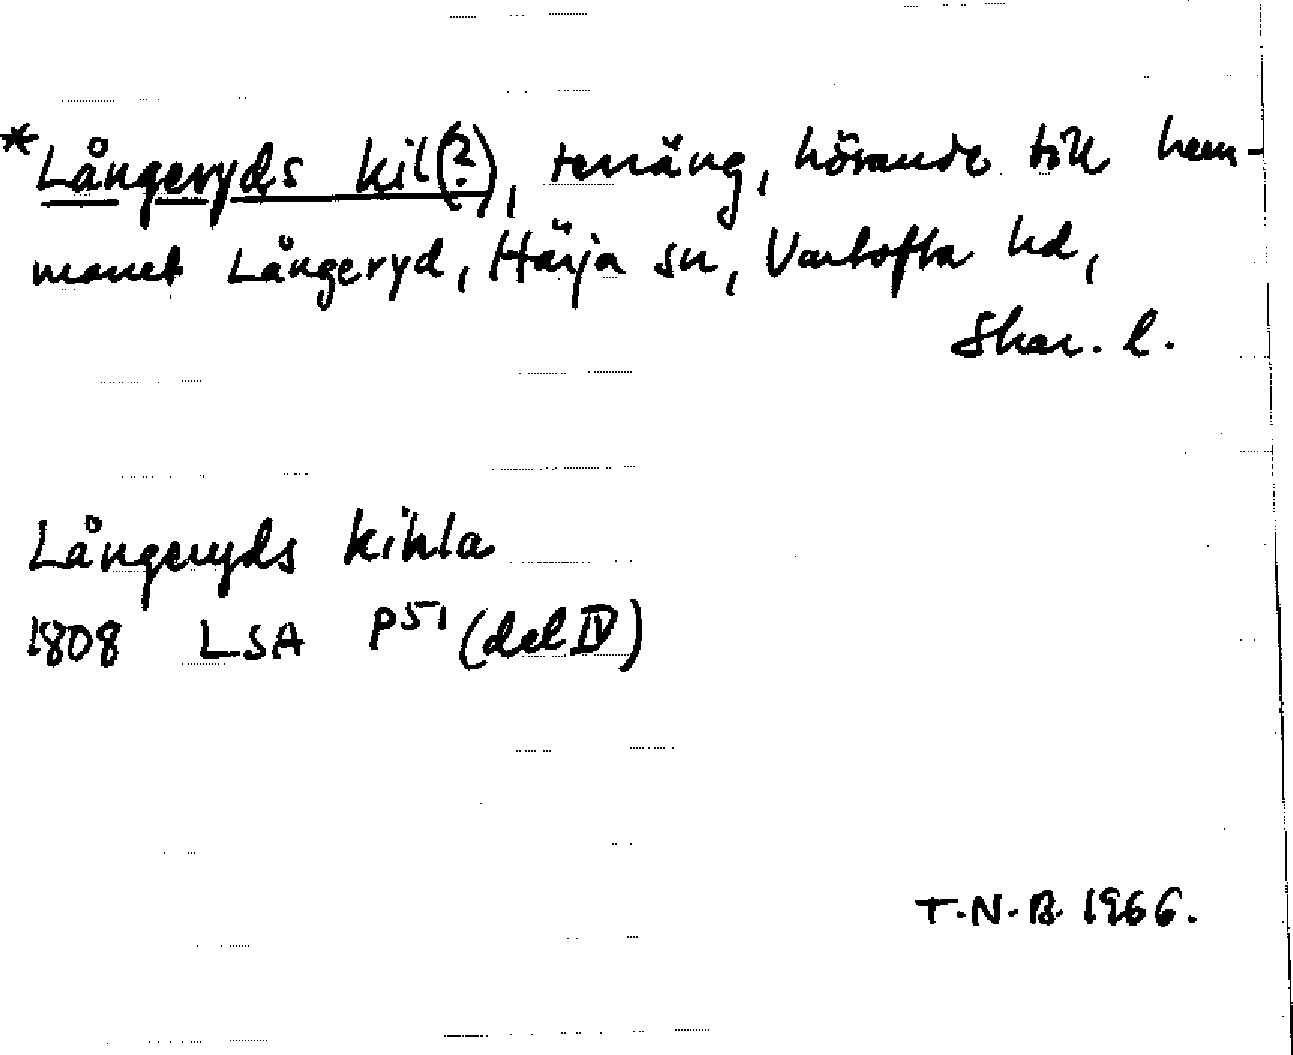 *Långeryds kil(?), tenäng, hörande till hem-
manet Långeryd, Härja sn, Vartofta hd,
Skar. l.
Långeryds kihla
1808 LSA P51 (del IV)
T.N.B. 1966.